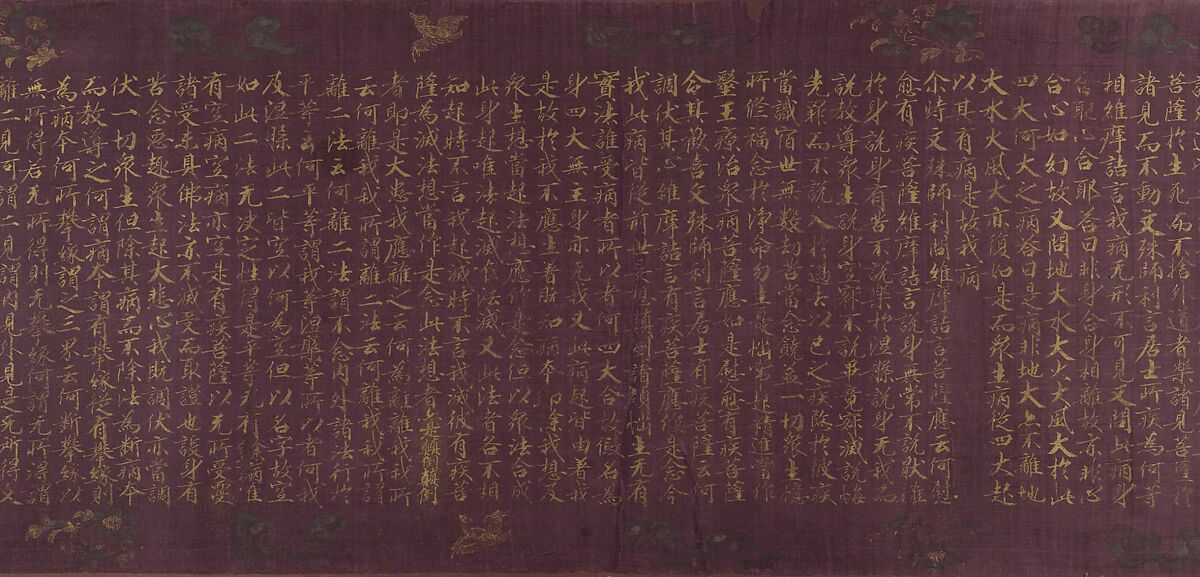 菩薩於生死而不捨引道者諸見菩薩於
諸見而不動文殊師利言居士所疾為何等
相維摩詰言我病无形不可見又問此病身
合耶心合耶答曰非身合身相離故亦非心
合心如幻故又問地大水大火大風大於此
四大何大之病答曰是病非地大亦不離地
大水火風大亦復如是而衆生病從四大起
以其有病是故我病
尒時文殊師利問維摩詰言菩薩應云何慰
愈有疾菩薩維摩詰言說身無常不說猒離
於身說身有苦不說樂於涅槃說身无我而
說教導衆生說身空寂不說畢竟寂滅說悔
先罪而不說入於過去以己之疾愍於彼疾
當識宿世無數劫苦當念饒益一切衆生憶
所修福念於淨命勿生憂惱常起精進當作
醫王療治衆病菩薩應如是慰愈有疾菩薩
令其歡喜文殊師利言居士有疾菩薩云何
調伏其心維摩詰言有疾菩薩應作是念今
我此病皆從前世妄想顛倒諸煩惱生无有
實法誰受病者所以者何四大合故假名為
身四大無主身亦无我又此病起皆由著我
是故於我不應生著既知病本即除我想及
衆生想當起法想應作是念但以衆法合成
此身起唯法起滅唯法滅又此法者各不相
知起時不言我起滅時不言我滅彼有疾菩
薩為滅法想當作是念此法想者亦是顛倒顛倒
者即是大患我應離之云何為離離我我所
云何離我我所謂離二法云何離我我所謂
離二法云何離二法謂不念內外諸法行於
平等云何平等謂我等涅槃等所以者何我
及涅槃此二皆空以何為空但以名字故空
如此二法无決定性得是平等无有餘病唯
有空病空病亦空是有疾菩薩以无所受而受
諸受未具佛法亦不滅受而取證也設身有
苦念惡趣衆生起大悲心我既調伏亦當調
伏一切衆生但除其病而不除法為斷病本
而教導之何謂病本謂有攀緣從有攀緣則
為病本何所攀緣謂之三界云何斷攀緣以
無所得若无所得則无攀緣何謂无所得謂
離二見何謂二見謂內見外見是无所得文